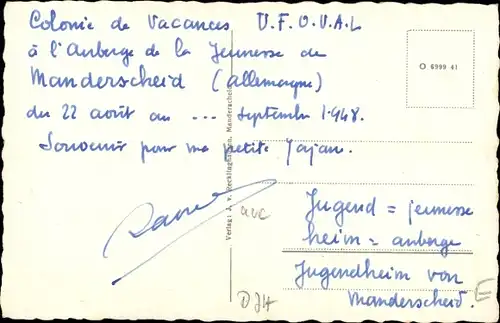 Colonie de Vacances U.F.O.V.A.L
à l'Auberge de la Jeunesse de
Manderscheid (Allemagne)
du 22 août au ... septembre 1948.
Souvenir pour ma petite
O 6999 41
Verlag: J. v. Recklinghausen, Manderscheid
Jugend = jeunesse
heim = auberge
Jugendheim von
Manderscheid.